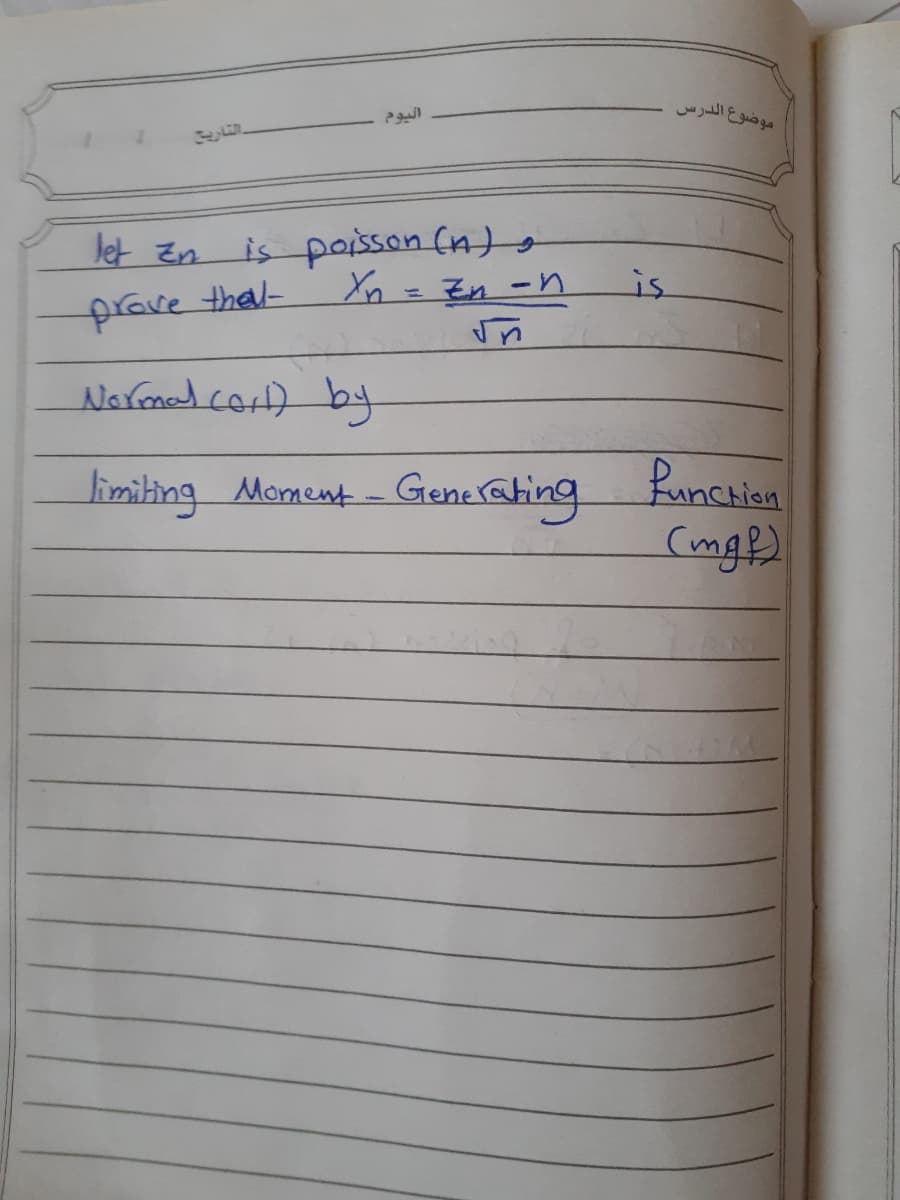 موضوع الدرس اليوم التاريخ / /
let Zn is poisson (n) ,
prove that Xn = Zn - n / √n is
Normal (0,1) by
limiting Moment - Generating function
(mgf)